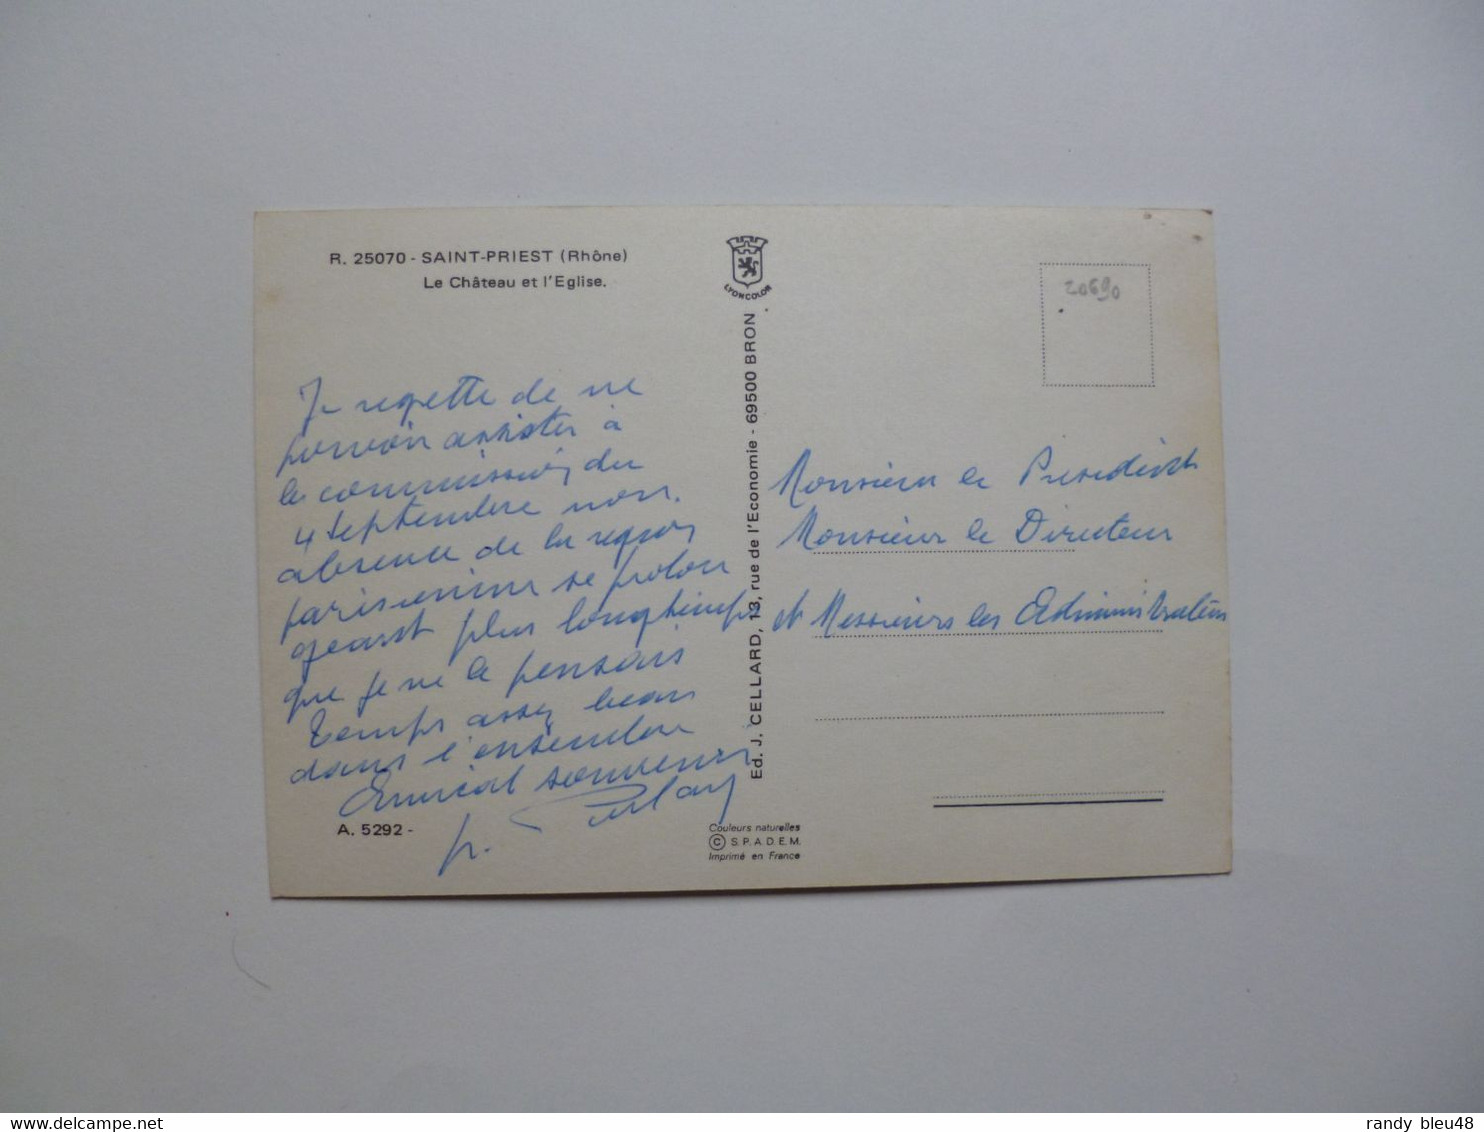 R. 25070 - SAINT-PRIEST (Rhône)
Le Château et l'Eglise.
LYONCOLOR
20690
Je regrette de ne
pouvoir assister à
la commission du
4 septembre mon
absence de la region
parisienne se prolon
geant plus longtemps
que je ne le pensais
temps assez beau
dans l'ensemble
Amical souvenir
A. 5292 -
Ed. J. CELLARD, 13, rue de l'Economie - 69500 BRON
Couleurs naturelles
© S.P.A.D.E.M.
Imprimé en France
Monsieur le President
Monsieur le Directeur
et Messieurs les Administrateurs
randy_bleu48
delcampe.net